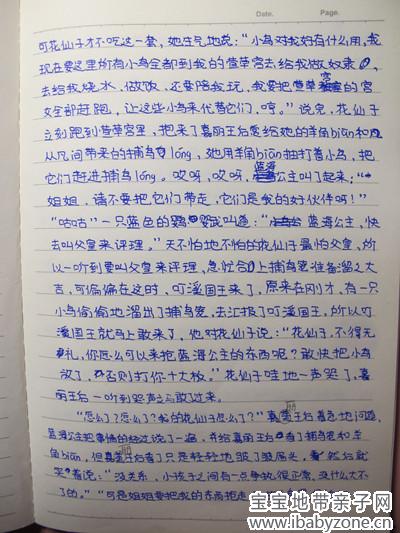 Date.
Page.
可花仙子才不吃这一套,她生气地说:“小鸟对我好有什么用,我
现在要这里所有小鸟全都到我的萱草宫去给我做奴隶,
去给我烧水、做饭、还要陪我玩,我要把萱草宫的宫
女全都赶跑,让这些小鸟来代替它们,哼。”说完,花仙子
立刻跑到萱草宫里,把来了喜丽王后爱给她的羊角biān和
从凡间带来的捕鸟lóng,她用羊角biān抽打着小鸟,把
它们赶进捕鸟lóng。哎呀,哎呀,蓝海公主叫了起来:“
姐姐,请不要把它们带走,它们是我的好伙伴呀!”
“咕咕”一只蓝色的鹦鹉叫道:“蓝海公主,快
去叫父皇来评理。”天不怕地不怕的花仙子最怕父皇,所
以一听到要叫父皇来评理,急忙合上捕鸟笼准备溜之大
吉,可偏偏在这时,叮溪国王来了,原来在刚才,有一只
小鸟偷偷地溜出了捕鸟笼,去汇报了叮溪国王,所以叮
溪国王就马上敢来了,他对花仙子说:“花仙子,不得无
礼,你怎么可以来把蓝海公主的东西呢?敢快把小鸟
放了,否则打你十大板。”花仙子哇地一声哭了,喜
丽王后一听到哭声立马敢过来。
“怎么了?怎么了?我的花仙子怎么了?”喜丽王后着急地问道,
蓝海公主把事情的经过说了一遍,并给喜丽王后看了捕鸟笼和羊
角biān,但喜丽王后看了只是轻轻地皱了皱眉头,看然后就
笑着说:“没关系,小孩子之间有一点争执很正常,没什么大不
了的。”“可是姐姐要把我的东西拒走
宝宝地带亲子网
www.ibabyzone.cn